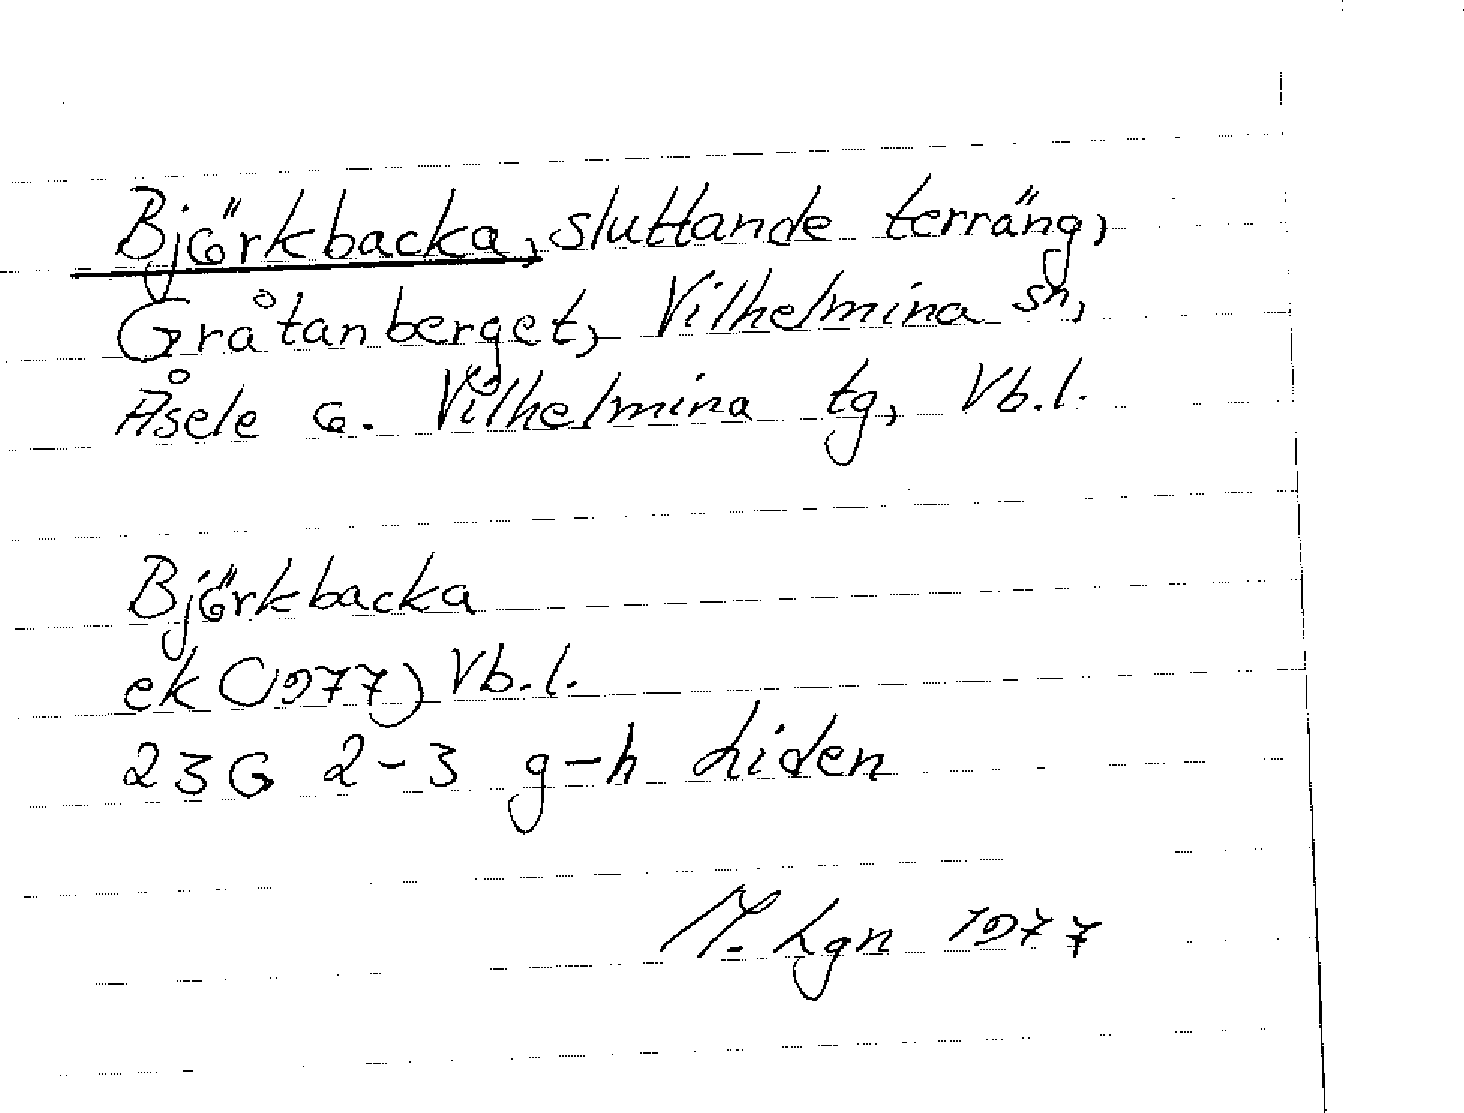 Björkbacka, sluttande terräng,
Gråtanberget, Vilhelmina sn,
Åsele o. Vilhelmina tg, Vb.l.
Björkbacka
ek (1977) Vb.l.
23G 2-3 g-h Liden
M. Lgn 1977